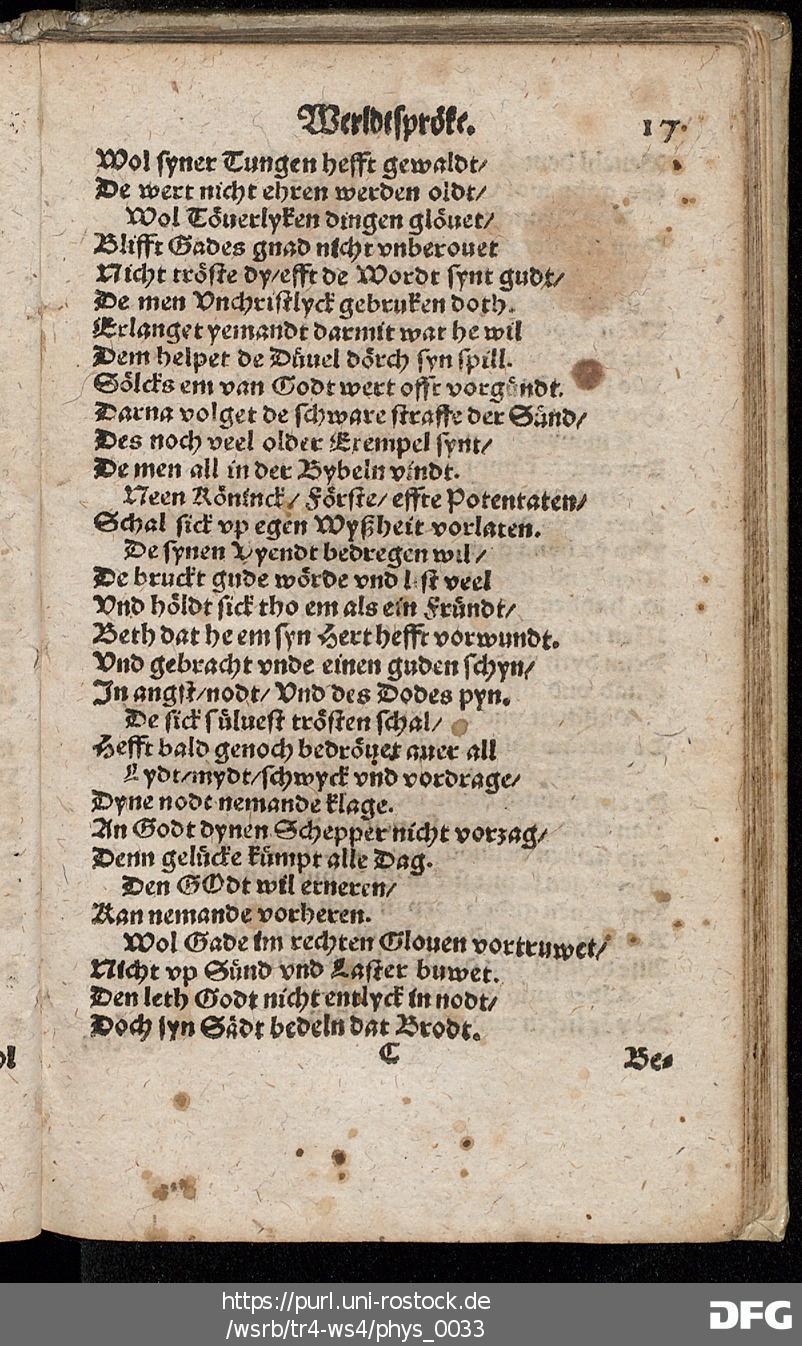 Werldtspröke. 17.
Wol syner Tungen hefft gewaldt/
De wert nicht ehren werden oldt/
Wol Töuerlyken dingen glöuet/
Blifft Gades gnad nicht vnberouet
Nicht tröste dy/efft de Wordt synt gudt/
De men Vnchristlyck gebruken doth.
Erlanget yemandt darmit wat he wil
Dem helpet de Düuel dörch syn spill.
Sölcks em van Godt wert offt vorgündt.
Darna volget de schware straffe der Sünd/
Des noch veel older Exempel synt/
De men all in der Bybeln vindt.
Neen Köninck/ Förste/ effte Potentaten/
Schal sick vp egen Wyßheit vorlaten.
De synen Vyendt bedregen wil/
De bruckt gude wörde vnd list veel
Vnd höldt sick tho em als ein Fründt/
Beth dat he em syn Hert hefft vorwundt.
Vnd gebracht vnde einen guden schyn/
In angst/nodt/ Vnd des Dodes pyn.
De sick süluest trösten schal/
Hefft bald genoch bedröuet auer all
Lydt/mydt/schwyck vnd vordrage/
Dyne nodt nemande klage.
An Godt dynen Schepper nicht vorzag/
Denn gelücke kümpt alle Dag.
Den GOdt wil erneren/
Kan nemande vorheren.
Wol Gade im rechten Glouen vortruwet/
Nicht vp Sünd vnd Laster buwet.
Den leth Godt nicht entlyck in nodt/
Doch syn Sädt bedeln dat Brodt.
C Be-
ol
https://purl.uni-rostock.de
/wsrb/tr4-ws4/phys_0033
DFG